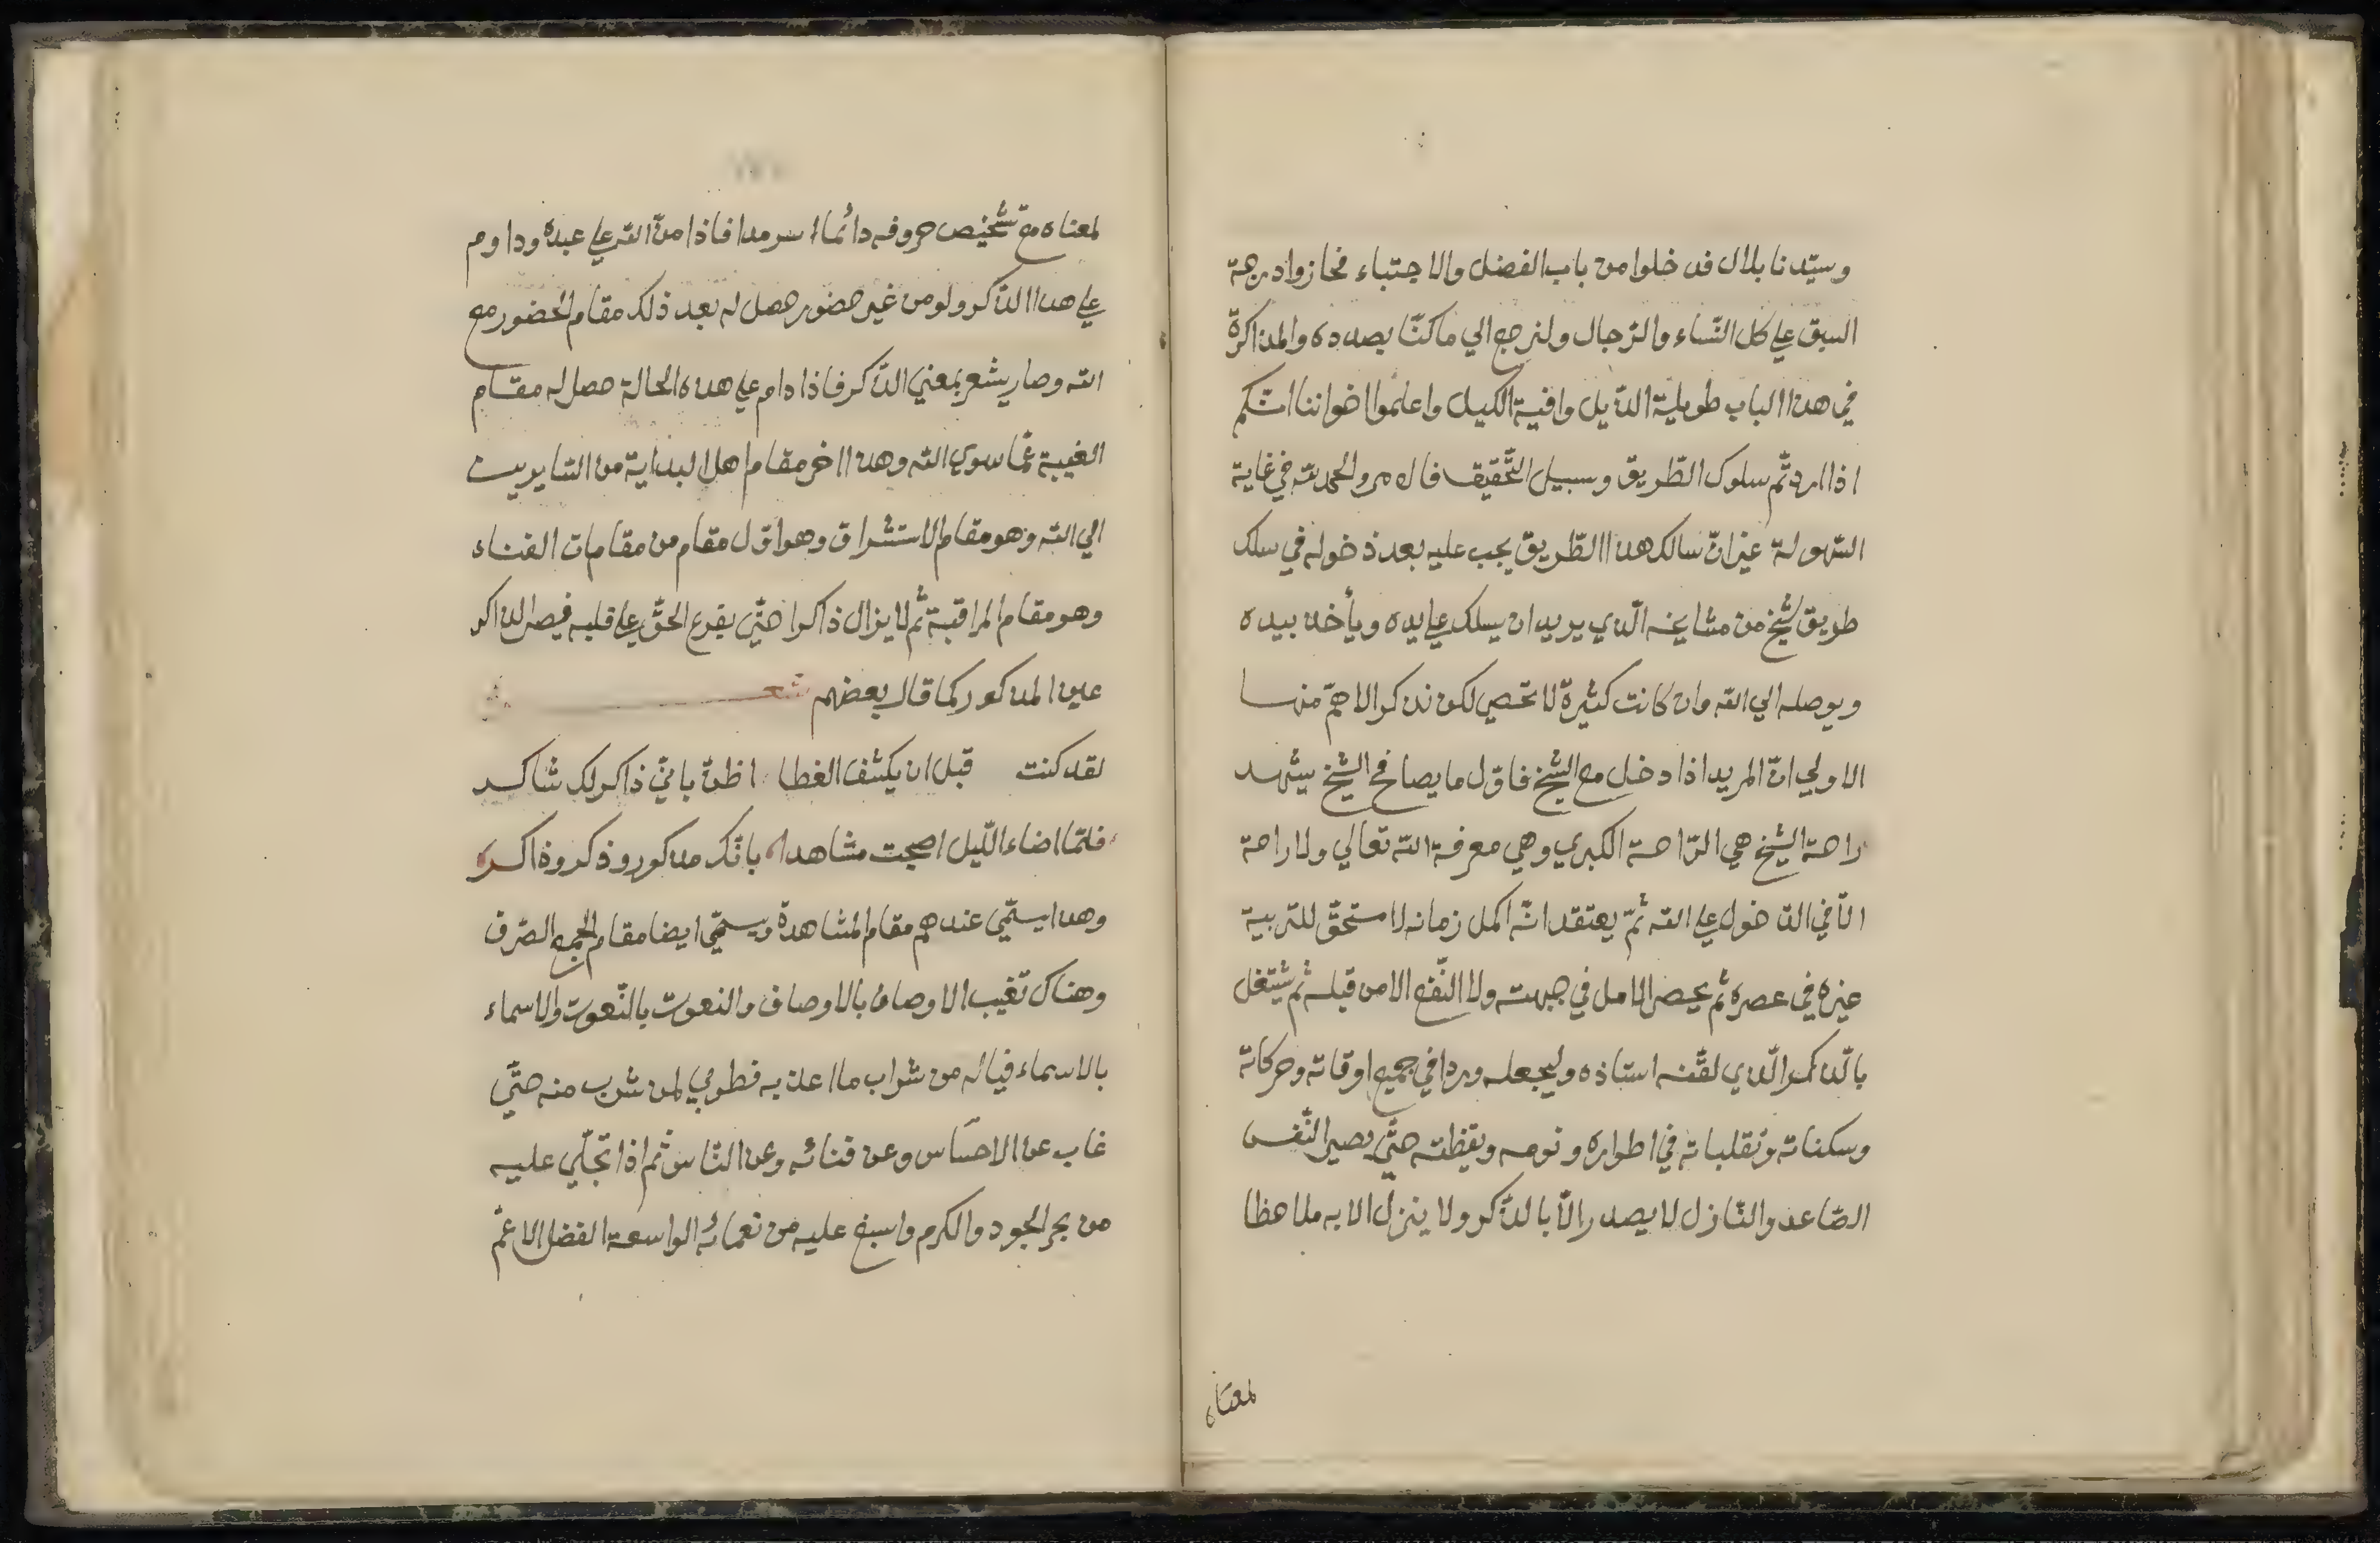 وسيّدنا بلال قد خلوا من باب الفضل والاجتباء فحازوا درجة
السبق علي كل النّساء والرّجال ولنرجع الي ما كنّا بصدده والمذاكرة
في هذا الباب طويلة الذّيل وافية الكيل واعلموا اخواننا انّكم
اذا اردتّم سلوك الطّريق وسبيل التّحقيق فالامر والحمد لله في غاية
السّهولة غير انّ سالك هذا الطّريق يجب عليه بعد دخوله في سلك
طريق شيخ من مشايخه الّذي يريد ان يسلك علي يده ويأخذ بيده
ويوصله الي الله وان كانت كثيرة لا تحصي لكن نذكر الاهمّ منها
الاولي انّ المريد اذا دخل مع الشّيخ فاوّل ما يصافح الشّيخ يشهد
راحة الشّيخ هي الرّاحة الكبري وهي معرفة الله تعالي ولا راحة
الّا في الدّخول علي الله ثمّ يعتقد انّه اكمل زمانه لا مستحقّ للتربية
غيره في عصره ثم يحصر الامل في جهته ولا النّفع الا من قبله ثم يشتغل
بالّذكر الّذي لقّنه استاذه وليجعله وردا في جميع اوقاته وحركاته
وسكناته وتقلباته في اطواره ونومه ويقظته حتّي يصير النّفس
الصّاعد والنّازل لا يصدر الّا بالذّكر ولا ينزل الا به ملاحظا
لمعناه
لمعناه مع تشخيص حروفه دائما سرمدا فاذا منّ الله علي عبده وداوم
علي هذا الذّكر ولو من غير حضور حصل له بعد ذلك مقام الحضور مع
الله وصار يشعر بمعني الذّكر فاذا دام علي هذه الحالة حصل له مقام
الغيبة عمّا سوي الله وهذا اخر مقام اهل البداية من السّايرين
الي الله وهو مقام الاستشراق وهو اوّل مقام من مقامات الفناء
وهو مقام المراقبة ثم لا يزال ذاكرا حتّي يقرع الحقّ علي قلبه فيصر الذاكر
عين المذكور كما قال بعضهم شعر
لقد كنت قبل ان يكشف الغطا اظنّ بانيّ ذاكر لك شاكر
فلمّا اضاء اللّيل اصبحت مشاهدا بانّك مذكور وذكر وذاكر
وهذا يسمّي عندهم مقام المشاهدة ويسمّي ايضا مقام الجمع الصّرف
وهناك تغيب الاوصاف بالاوصاف والنعوت بالنّعوت والاسماء
بالاسماء فياله من شراب ما اعذبه فطوبي لمن شرب منه حتّي
غاب عن الاحساس وعن فنائه وعن النّاس ثم اذا تجلّي عليه
من بحر الجود والكرم واسبغ عليه من نعمائه الواسعة الفضل الاعمّ